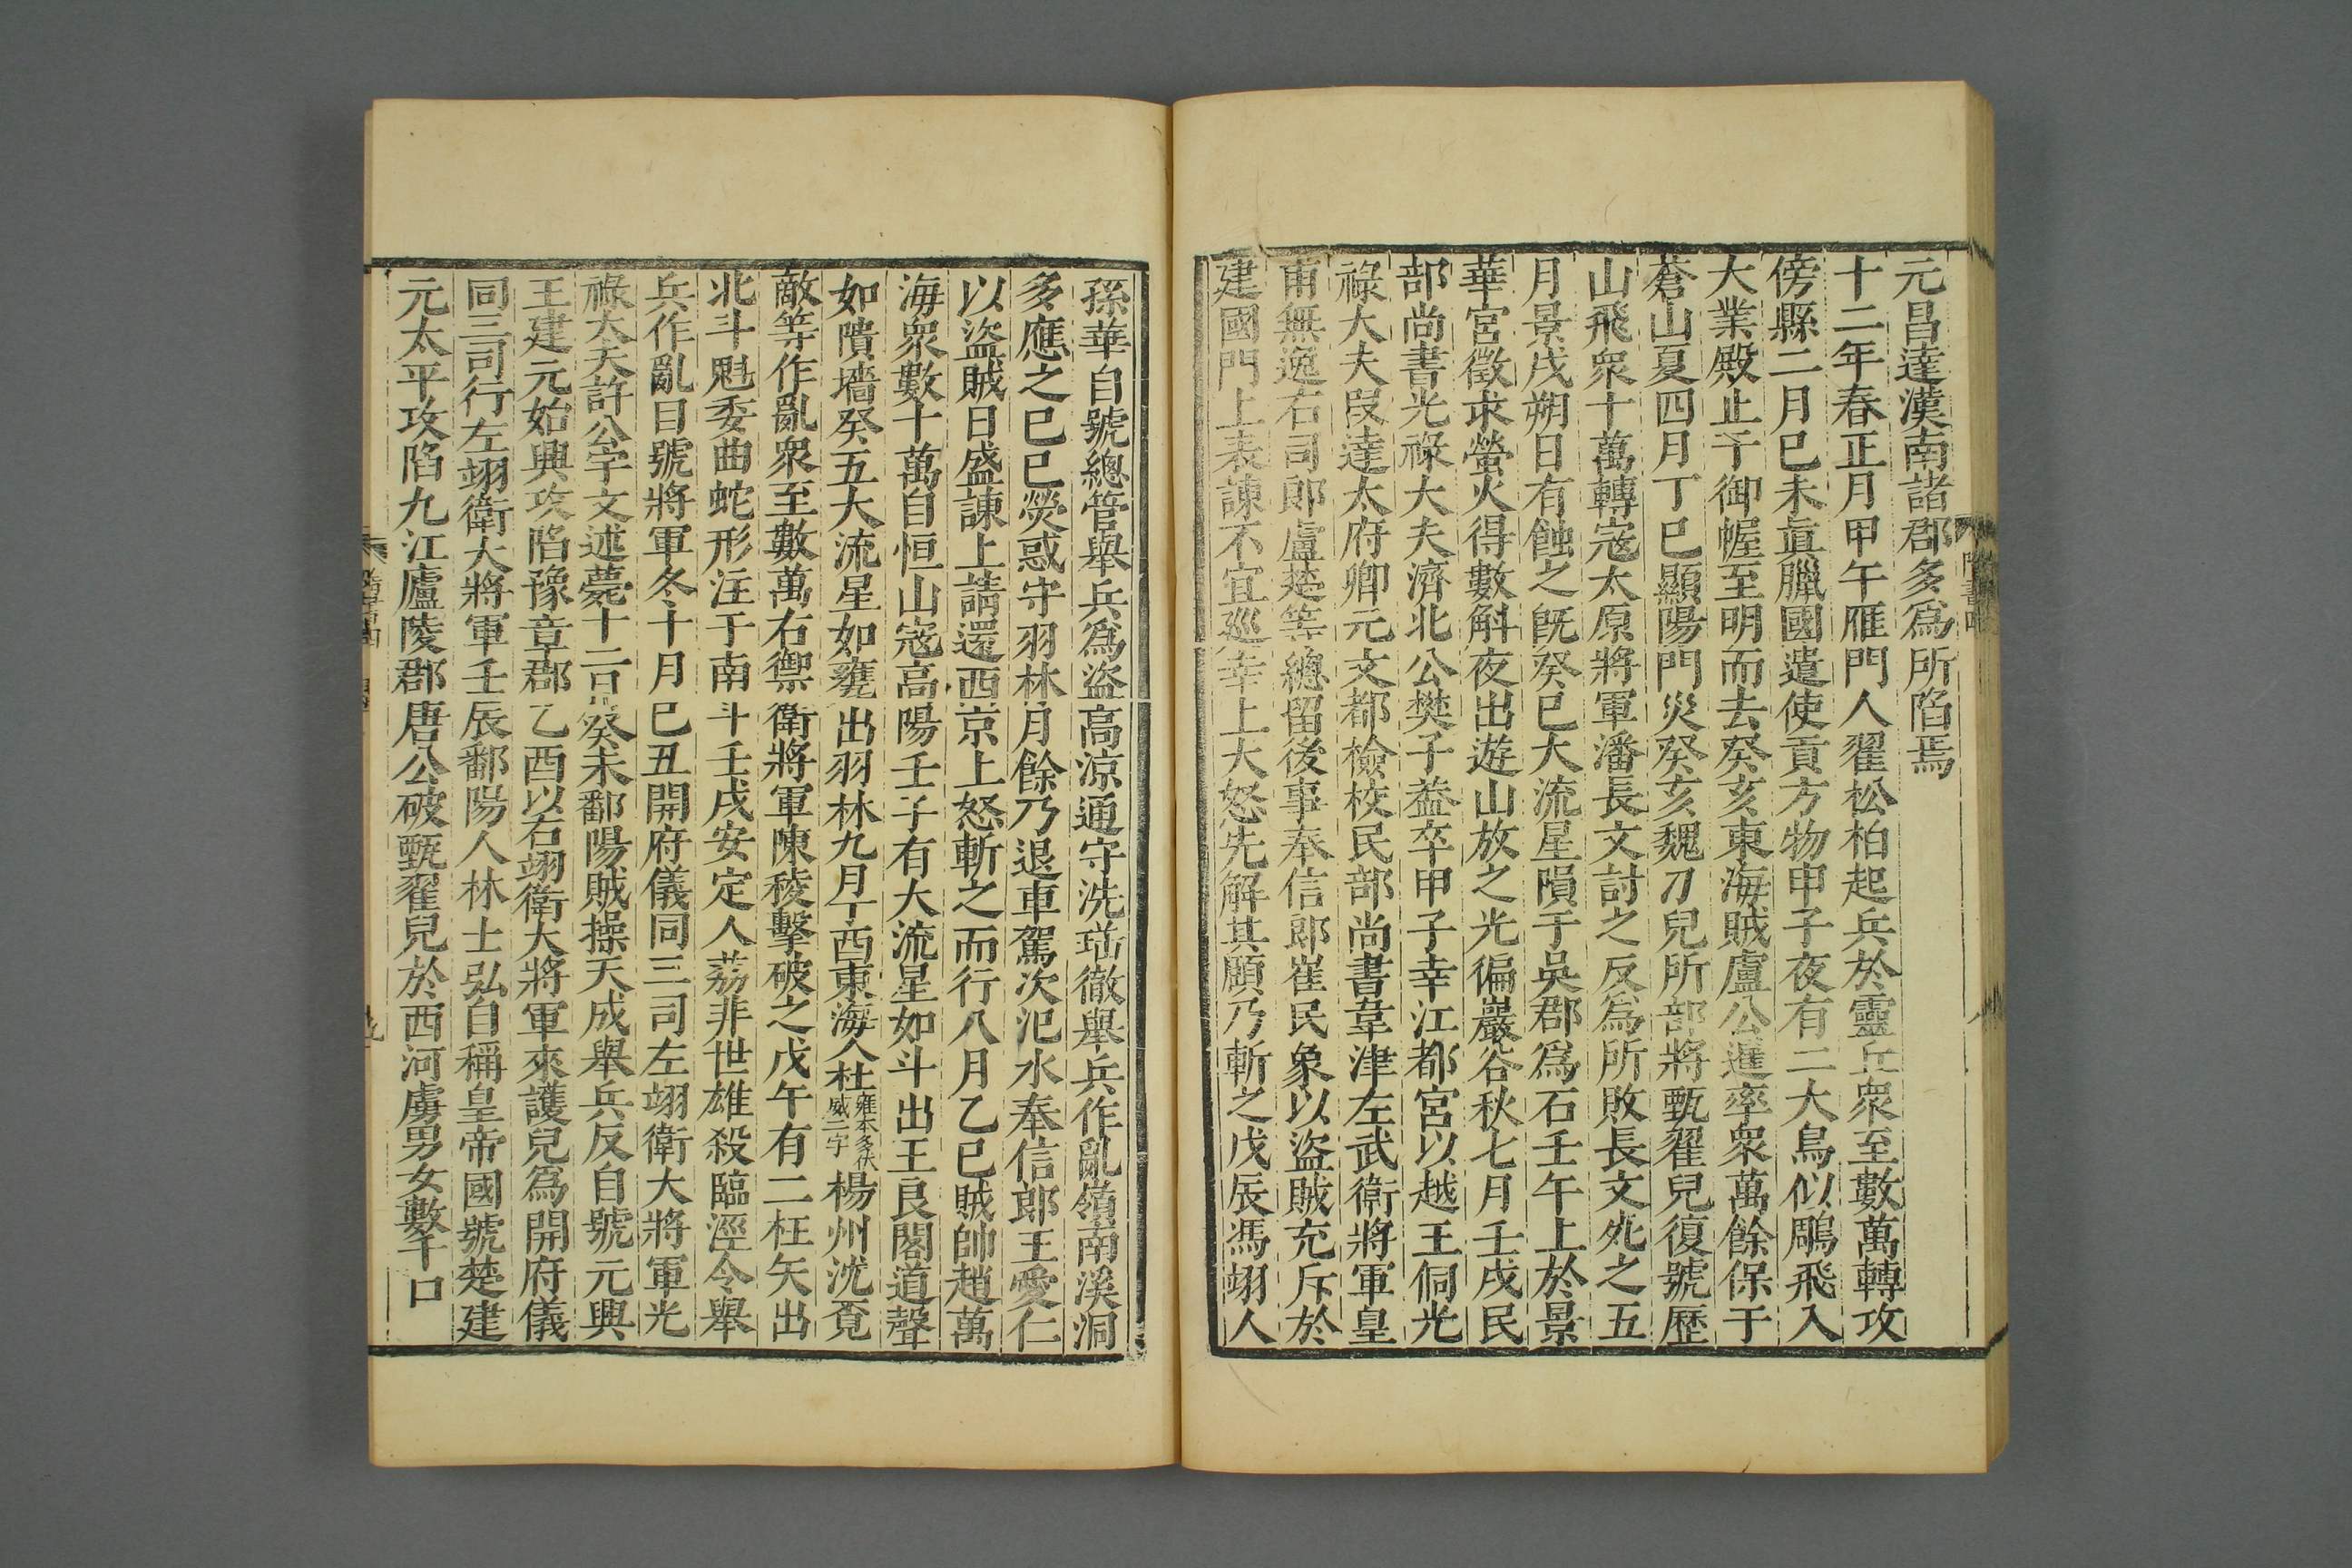 元昌達漢南諸郡多爲所陷焉
十二年春正月甲午雁門人翟松柏起兵於靈丘衆至數萬轉攻
傍縣二月己未真臘國遣使貢方物甲子夜有二大鳥似鵰飛入
大業殿止于御幄至明而去癸亥東海賊盧公暹率衆萬餘保于
蒼山夏四月丁巳顯陽門災癸亥魏刀兒所部將甄翟兒復號歷
山飛衆十萬轉寇太原將軍潘長文討之反爲所敗長文死之五
月景戌朔日有蝕之旣癸巳大流星隕于吳郡爲石壬午上於景
華宮徵求螢火得數斛夜出遊山放之光徧巖谷秋七月壬戌民
部尚書光祿大夫濟北公樊子葢卒甲子幸江都宮以越王侗光
祿大夫叚達太府卿元文都檢校民部尚書韋津左武衛將軍皇
甫無逸右司郎盧楚等總留後事奉信郎崔民象以盜賊充斥於
建國門上表諫不宜巡幸上大怒先解其頤乃斬之戊辰馮翊人
孫華自號總管舉兵爲盜高涼通守洗珤徹舉兵作亂嶺南溪洞
多應之己巳熒惑守羽林月餘乃退車駕次汜水奉信郎王愛仁
以盜賊日盛諫上請還西京上怒斬之而行八月乙巳賊帥趙萬
海衆數十萬自恒山寇高陽壬子有大流星如斗出王良閣道聲
如隤墻癸丑大流星如甕出羽林九月丁酉東海人杜雍本多伏威二字楊州沈覔
敵等作亂衆至數萬右禦衛將軍陳稜擊破之戊午有二枉矢出
北斗魁委曲蛇形注于南斗壬戌安定人荔非世雄殺臨涇令舉
兵作亂自號將軍冬十月己丑開府儀同三司左翊衛大將軍光
祿大夫許公宇文述薨十二月癸未鄱陽賊操天成舉兵反自號元興
王建元始興攻陷豫章郡乙酉以右翊衛大將軍來護兒爲開府儀
同三司行左翊衛大將軍壬辰鄱陽人林士弘自稱皇帝國號楚建
元太平攻陷九江廬陵郡唐公破甄翟兒於西河虜男女數千口